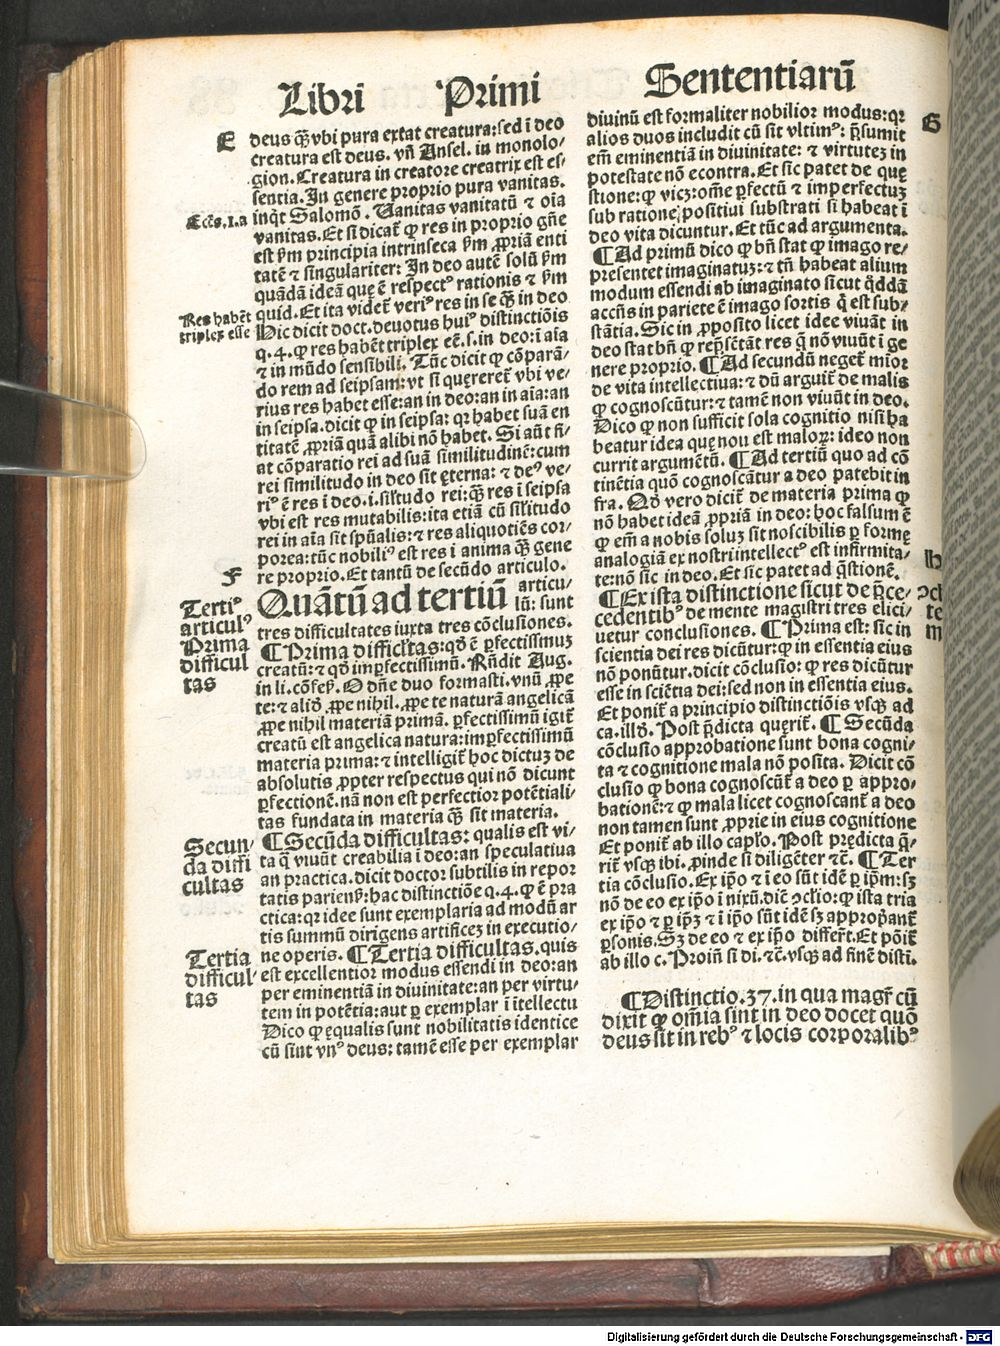 Libri Primi Sententiarū
E
deus q̄ȝ vbi pura extat creatura: sed ī deo
creatura est deus. vn̄ Ansel. in monolo-
gion. Creatura in creatore creatrix est es-
sentia. In genere proprio pura vanitas.
Eccs̄.1.a
inqt Salomō. Uanitas vanitatū ⁊ oīa
vanitas. Et si dicat̄ ꝙ res in proprio gn̄e
est ẜm principia intrinseca ẜm ꝓpriā enti
tatē ⁊ singulariter: In deo autē solū ẜm
quādā ideā que ē respectꝰ rationis ⁊ ẜm
quid. Et ita videt̄ veriꝰ res in se q̄ȝ in deo
Res habēt
triplex esse
Hic dicit doct. deuotus huiꝰ distinctiōis
q.4. ꝙ res habēt triplex eē. s. in deo: ī aīa
⁊ in mūdo sensibili. Tūc dicit ꝙ cōparā-
do rem ad seipsam: vt si quęreret̄ vbi ve-
rius res habet esse: an in deo: an in aīa: an
in seipsa. dicit ꝙ in seipsa: qꝛ habet suā en
titatē ꝓpriā quā alibi nō habet. Si aūt fi-
at cōparatio rei ad suā similitudinē: cum
rei similitudo in deo sit ęterna: ⁊ deꝰ ve-
riꝰ ē res ī deo .i. sil̄itudo rei: q̄ȝ res ī seipsa
vbi est res mutabilis: ita etiā cū sil̄itudo
rei in aīa sit sp̄ualis: ⁊ res aliquotiēs cor-
porea: tūc nobiliꝰ est res ī anima q̄ȝ gene
re proprio. Et tantū de secūdo articulo.
F
Tertiꝰ
articulꝰ
Prima
difficul
tas
Quātū ad tertiū articu-
lū: sunt
tres difficultates iuxta tres cōclusiones.
¶ Prima difficl̄tas: qd̄ ē ꝑfectissimuȝ
creatū: ⁊ qd̄ imꝑfectissimū. Rn̄dit Aug.
in li. cōfes. O dn̄e duo formasti. vnū ꝓpe
te: ⁊ aliđ ꝓpe nihil. ꝓpe te naturā angelicā
ꝓpe nihil materiā primā. ꝑfectissimū igit̄
creatū est angelica natura: imꝑfectissimū
materia prima: ⁊ intelligit̄ hoc dictuȝ de
absolutis ꝓpter respectus qui nō dicunt
ꝑfectionē. nā non est perfectior potētiali-
tas fundata in materia q̄ȝ sit materia.
Secun-
da diffi
cultas
¶ Secūda difficultas: qualis est vi-
ta q̄ viuūt creabilia ī deo: an speculatiua
an practica. dicit doctor subtilis in repor
tatis parieñ. hac distinctiōe q.4. ꝙ ē pra
ctica: qꝛ idee sunt exemplaria ad modū ar
tis summū dirigens artificeȝ in executio-
Tertia
difficul-
tas
ne operis. ¶ Tertia difficultas. quis
est excellentior modus essendi in deo: an
per eminentiā in diuinitate: an per virtu-
tem in potētia: aut ꝑ exemplar ī ītellectu
Dico ꝙ equalis sunt nobilitatis identice
cū sint vnꝰ deus: tamē esse per exemplar
G
diuinū est formaliter nobilior modus: qꝛ
alios duos includit cū sit vltimꝰ: p̄sumit
em̄ eminentiā in diuinitate: ⁊ virtuteȝ in
potestate nō econtra. Et sic patet de quę
stione: ꝙ vicȝ: om̄e ꝑfectū ⁊ imperfectuȝ
sub ratione positiui substrati si habeat ī
deo vita dicuntur. Et tūc ad argumenta.
¶ Ad primū dico ꝙ bn̄ stat ꝙ imago re-
presentet imaginatuȝ: ⁊ tn̄ habeat alium
modum essendi ab imaginato sicut q̄ddā
accn̄s in pariete ē imago sortis q̄ est sub-
stātia. Sic in ꝓposito licet idee viuāt in
deo stat bn̄ ꝙ rep̄sētāt res q̄ nō viuūt ī ge
nere proprio. ¶ Ad secundū neget̄ mior
de vita intellectiua: ⁊ dū arguit̄ de malis
ꝙ cognoscūtur: ⁊ tamē non viuūt in deo.
Dico ꝙ non sufficit sola cognitio nisi ha
beatur idea que non est maloꝝ: ideo non
currit argumētū. ¶ Ad tertiū quo ad cō
tinētia quō cognoscātur a deo patebit in
fra. Qđ vero dicit̄ de materia prima ꝙ
nō habet ideā ꝓpriā in deo: hoc falsum ē
ꝙ em̄ a nobis soluȝ sit noscibilis ꝑ formę
analogiā ex nostri intellectꝰ est infirmita-
te: nō sic in deo. Et sic patet ad q̄stionē.
H
¶ Ex ista distinctione sicut de p̄ce-
cedentibꝰ de mente magistri tres elici-
uetur conclusiones. ¶ Prima est: sic in
scientia dei res dicūtur: ꝙ in essentia eius
nō ponūtur. dicit cōclusio: ꝙ res dicūtur
esse in sciētia dei: sed non in essentia eius.
Et ponit̄ a principio distinctiōis vsqȝ ad
ca. illđ. Post p̄dicta querit̄. ¶ Secūda
cōclusio approbatione sunt bona cogni-
ta ⁊ cognitione mala nō posita. Dicit cō
clusio ꝙ bona cognoscūt̄ a deo ꝑ appro-
bationē: ⁊ ꝙ mala licet cognoscant̄ a deo
non tamen sunt ꝓprie in eius cognitione
Et ponit̄ ab illo capl̄o. Post predicta q̄-
rit̄ vsqȝ ibi. ꝓinde si diligēter ⁊c̄. ¶ Ter
tia cōclusio. Ex ip̄o ⁊ ī eo sūt idē ꝑ ip̄m: sȝ
nō de eo ex ip̄o ī nixū. dic̄ ↄcl̄io: ꝙ ista tria
ex ip̄o ⁊ ꝑ ip̄ȝ ⁊ ī ip̄o sūt idē sȝ appropāant̄
ꝑsonis. Sȝ de eo ⁊ ex ip̄o differt̄. Et pōit̄
ab illo c. Proin̄ si di. ⁊c̄. vsqȝ ad finē disti.
¶ Distinctio .37. in qua magr̄ cū
dixit ꝙ om̄ia sint in deo docet quō
deus sit in rebꝰ ⁊ locis corporalibꝰ
Digitalisierung gefördert durch die Deutsche Forschungsgemeinschaft - DFG